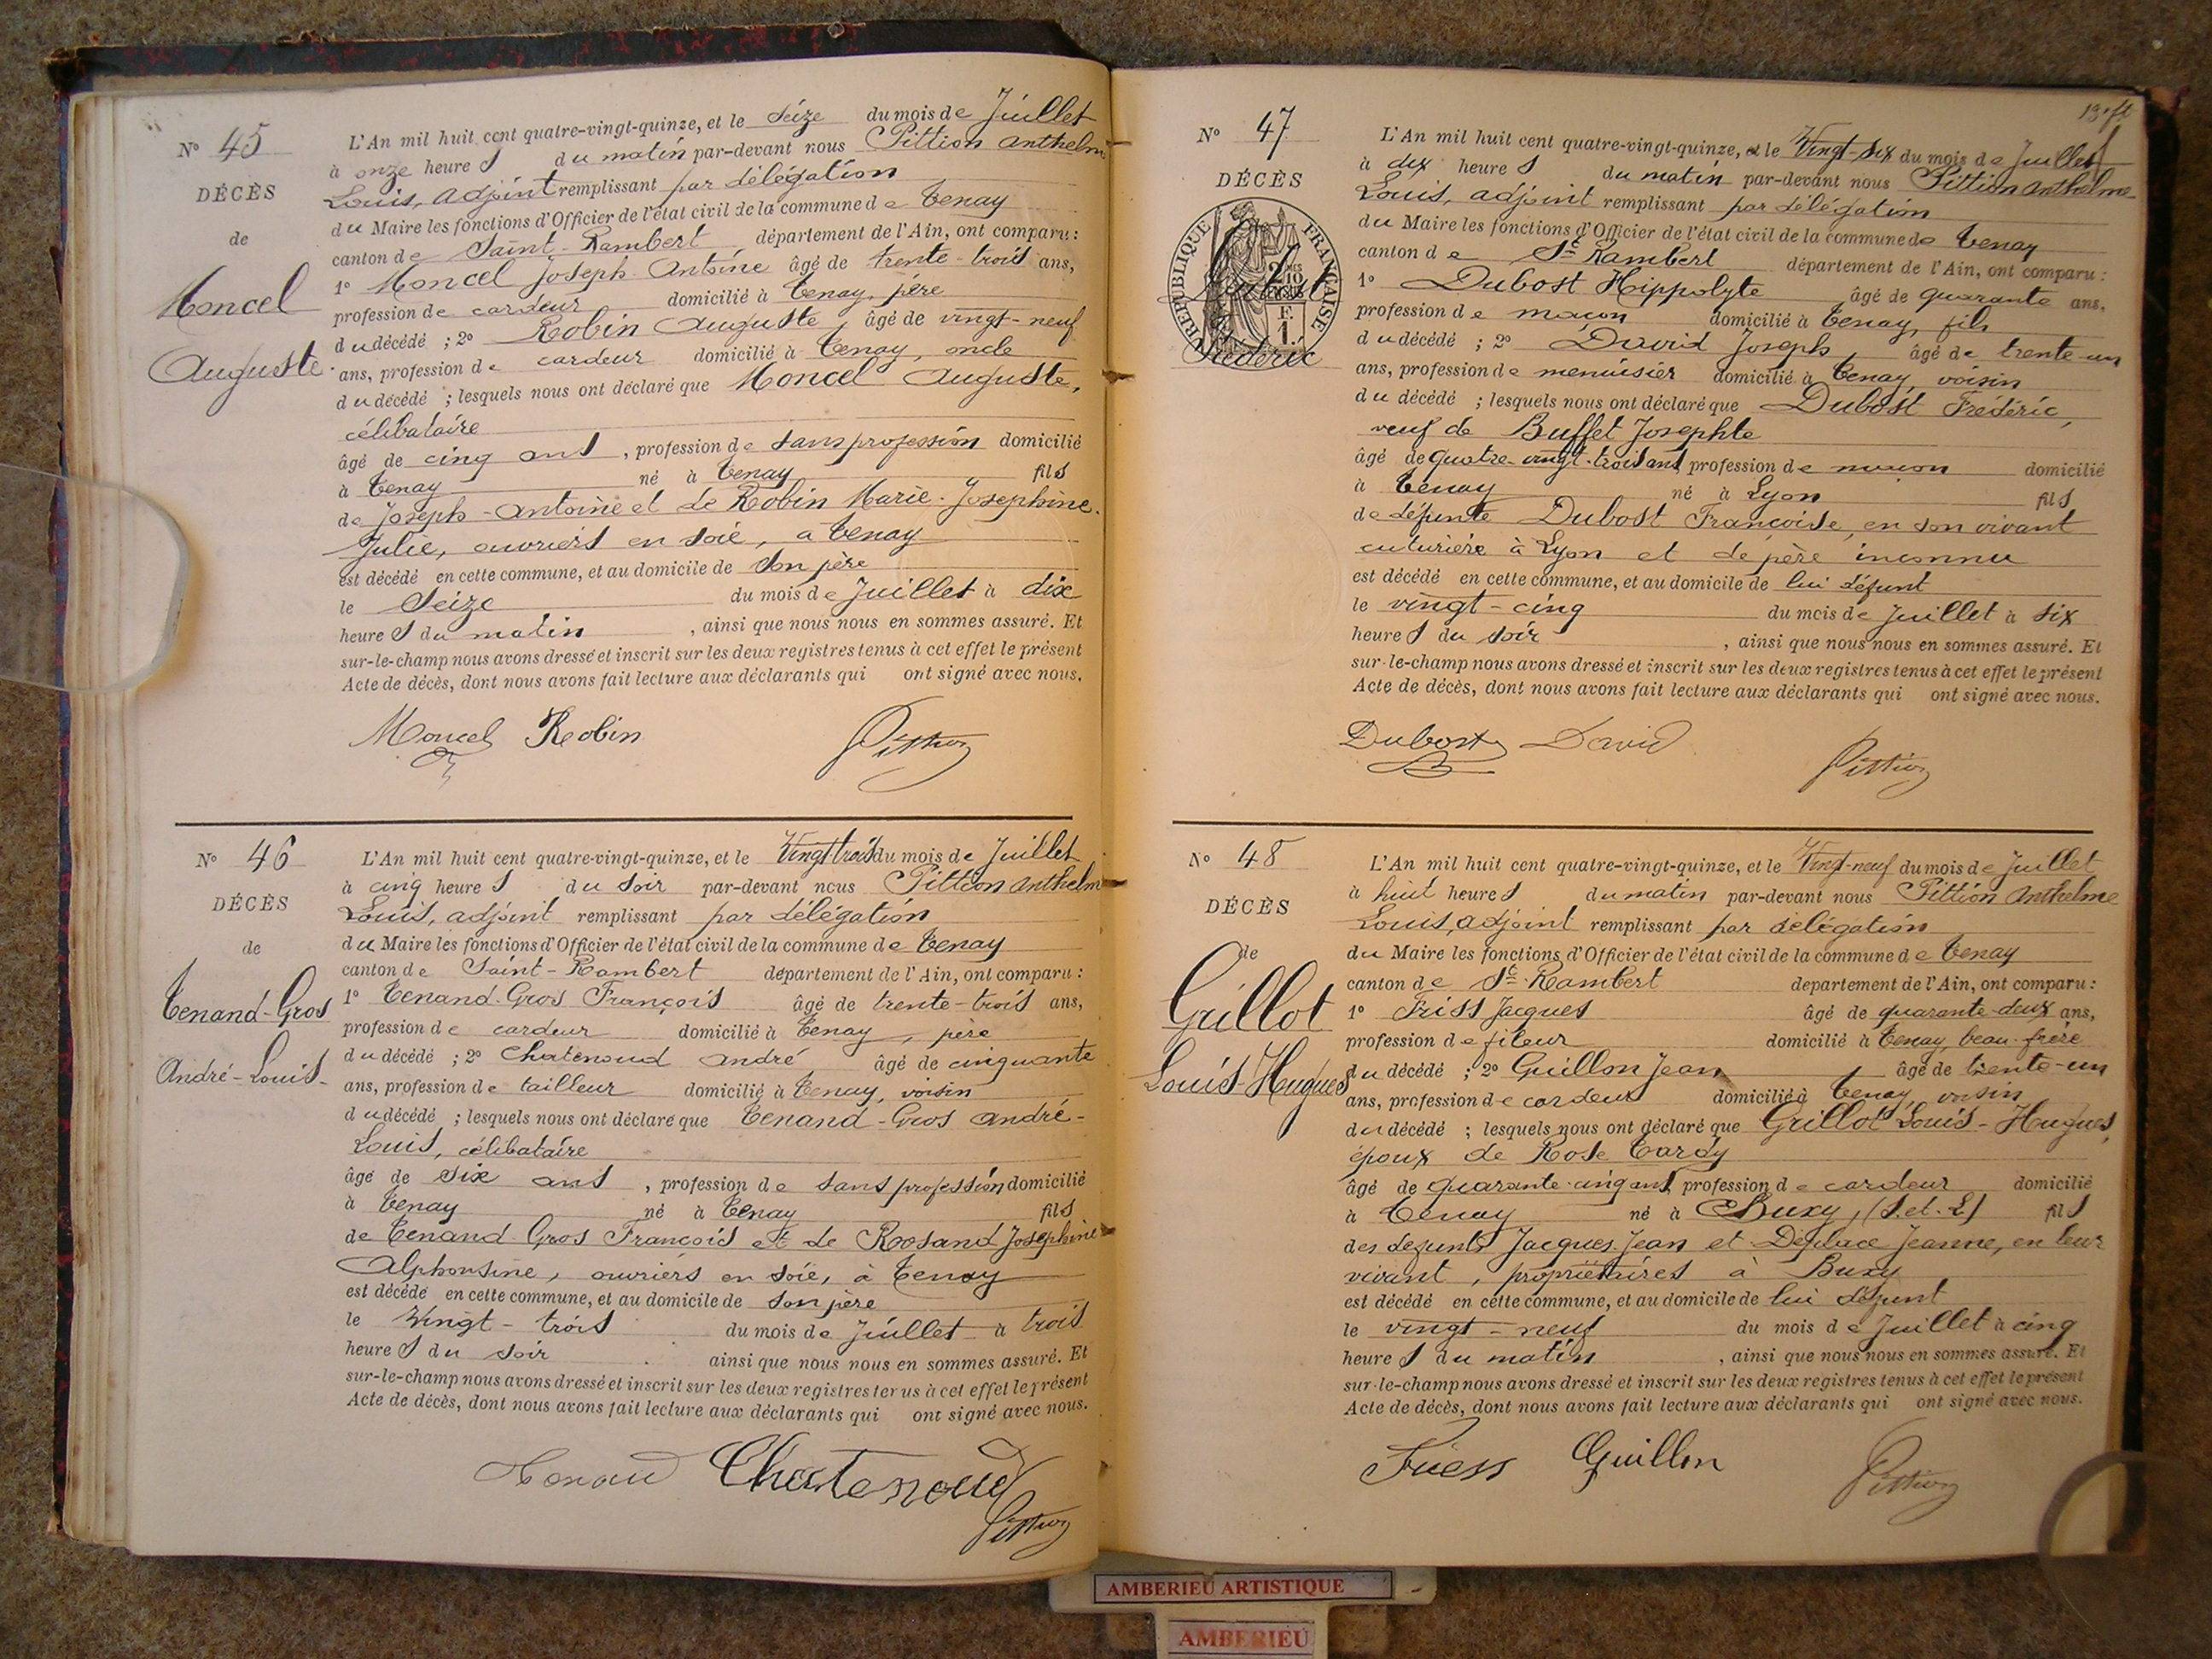 N° 45
DÉCÈS
de
Moncel
Auguste
L'An mil huit cent quatre-vingt-quinze, et le Seize du mois de Juillet
à onze heures du matin par-devant nous Pittion Anthelme
Louis, adjoint remplissant par délégation
du Maire les fonctions d'Officier de l'état civil de la commune de Tenay
canton de Saint-Rambert, département de l'Ain, ont comparu :
1° Moncel Joseph-Antoine âgé de trente-trois ans,
profession de cardeur domicilié à Tenay, père
du décédé ; 2° Robin Auguste, âgé de vingt-neuf
ans, profession de cardeur domicilié à Tenay, oncle
du décédé ; lesquels nous ont déclaré que Moncel Auguste,
célibataire
âgé de cinq ans, profession de sans profession domicilié
à Tenay né à Tenay fils
de Joseph-Antoine et de Robin Marie-Josephine
Julie, ouvriers en soie, à Tenay
est décédé en cette commune, et au domicile de son père
le Seize du mois de Juillet à dix
heures du matin, ainsi que nous nous en sommes assuré. Et
sur-le-champ nous avons dressé et inscrit sur les deux registres tenus à cet effet le présent
Acte de décès, dont nous avons fait lecture aux déclarants qui ont signé avec nous.
Moncel Robin Pittion
N° 46
DÉCÈS
de
Tenand-Gros
André-Louis
L'An mil huit cent quatre-vingt-quinze, et le Vingt trois du mois de Juillet
à cinq heures du soir par-devant nous Pittion Anthelme
Louis, adjoint remplissant par délégation
du Maire les fonctions d'Officier de l'état civil de la commune de Tenay
canton de Saint-Rambert département de l'Ain, ont comparu :
1° Tenand-Gros François âgé de trente-trois ans,
profession de cardeur domicilié à Tenay, père
du décédé ; 2° Chatenoud André âgé de cinquante
ans, profession de tailleur domicilié à Tenay, voisin
du décédé ; lesquels nous ont déclaré que Tenand-Gros André-
Louis, célibataire
âgé de six ans, profession de sans profession domicilié
à Tenay né à Tenay fils
de Tenand-Gros François et de Rosand Josephine
Alphonsine, ouvriers en soie, à Tenay
est décédé en cette commune, et au domicile de son père
le Vingt-trois du mois de Juillet à trois
heures du soir ainsi que nous nous en sommes assuré. Et
sur-le-champ nous avons dressé et inscrit sur les deux registres tenus à cet effet le présent
Acte de décès, dont nous avons fait lecture aux déclarants qui ont signé avec nous.
Tenand Chatenoud
Pittion
N° 47
DÉCÈS
RÉPUBLIQUE FRANÇAISE
Dubost
Frédéric
L'An mil huit cent quatre-vingt-quinze, et le Vingt-six du mois de Juillet
à dix heures du matin par-devant nous Pittion Anthelme
Louis, adjoint remplissant par délégation
du Maire les fonctions d'Officier de l'état civil de la commune de Tenay
canton de St Rambert département de l'Ain, ont comparu :
1° Dubost Hippolyte âgé de quarante ans,
profession de maçon domicilié à Tenay, fils
du décédé ; 2° David Joseph, âgé de trente-un
ans, profession de menuisier domicilié à Tenay, voisin
du décédé ; lesquels nous ont déclaré que Dubost Frédéric,
veuf de Buffet Josephte
âgé de quatre-vingt-trois ans, profession de maçon domicilié
à Tenay né à Lyon fils
de défunte Dubost Françoise, en son vivant
couturière à Lyon et de père inconnu
est décédé en cette commune, et au domicile de lui défunt
le vingt-cinq du mois de Juillet à six
heures du soir, ainsi que nous nous en sommes assuré. Et
sur-le-champ nous avons dressé et inscrit sur les deux registres tenus à cet effet le présent
Acte de décès, dont nous avons fait lecture aux déclarants qui ont signé avec nous.
Dubost David Pittion
N° 48
DÉCÈS
de
Grillot
Louis-Hugues
L'An mil huit cent quatre-vingt-quinze, et le Vingt-neuf du mois de Juillet
à huit heures du matin par-devant nous Pittion Anthelme
Louis, adjoint remplissant par délégation
du Maire les fonctions d'Officier de l'état civil de la commune de Tenay
canton de St Rambert département de l'Ain, ont comparu :
1° Friss Jacques âgé de quarante-deux ans,
profession de fileur domicilié à Tenay, beau-frère
du décédé ; 2° Guillon Jean âgé de trente-un
ans, profession de cardeur domicilié à Tenay, voisin
du décédé ; lesquels nous ont déclaré que Grillot Louis-Hugues,
époux de Rose Tardy
âgé de quarante-cinq ans, profession de cardeur domicilié
à Tenay né à Buxy, (S.et.L) fils
des défunts Jacques Jean et Deplace Jeanne, en leur
vivant, propriétaires à Buxy
est décédé en cette commune, et au domicile de lui défunt
le vingt-neuf du mois de Juillet à cinq
heures du matin, ainsi que nous nous en sommes assuré. Et
sur-le-champ nous avons dressé et inscrit sur les deux registres tenus à cet effet le présent
Acte de décès, dont nous avons fait lecture aux déclarants qui ont signé avec nous.
Friess Guillon Pittion
AMBERIEU ARTISTIQUE
AMBERIEU